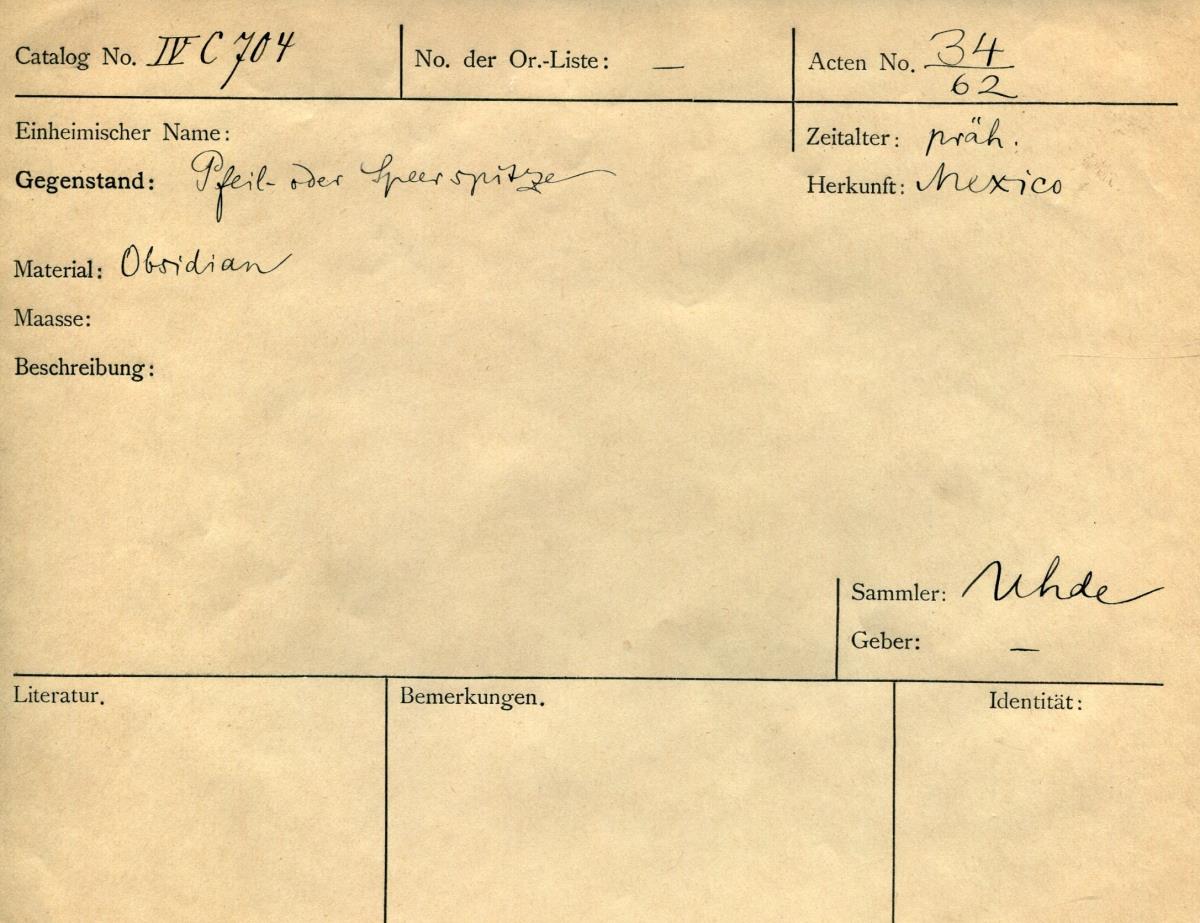 Catalog No. IV C 704 No. der Or.-Liste: — Acten No. 34/62
Einheimischer Name: Zeitalter: präh.
Gegenstand: Pfeil- oder Speerspitze Herkunft: Mexico
Material: Obsidian
Maasse:
Beschreibung:
Sammler: Uhde
Geber: —
Literatur. Bemerkungen. Identität: